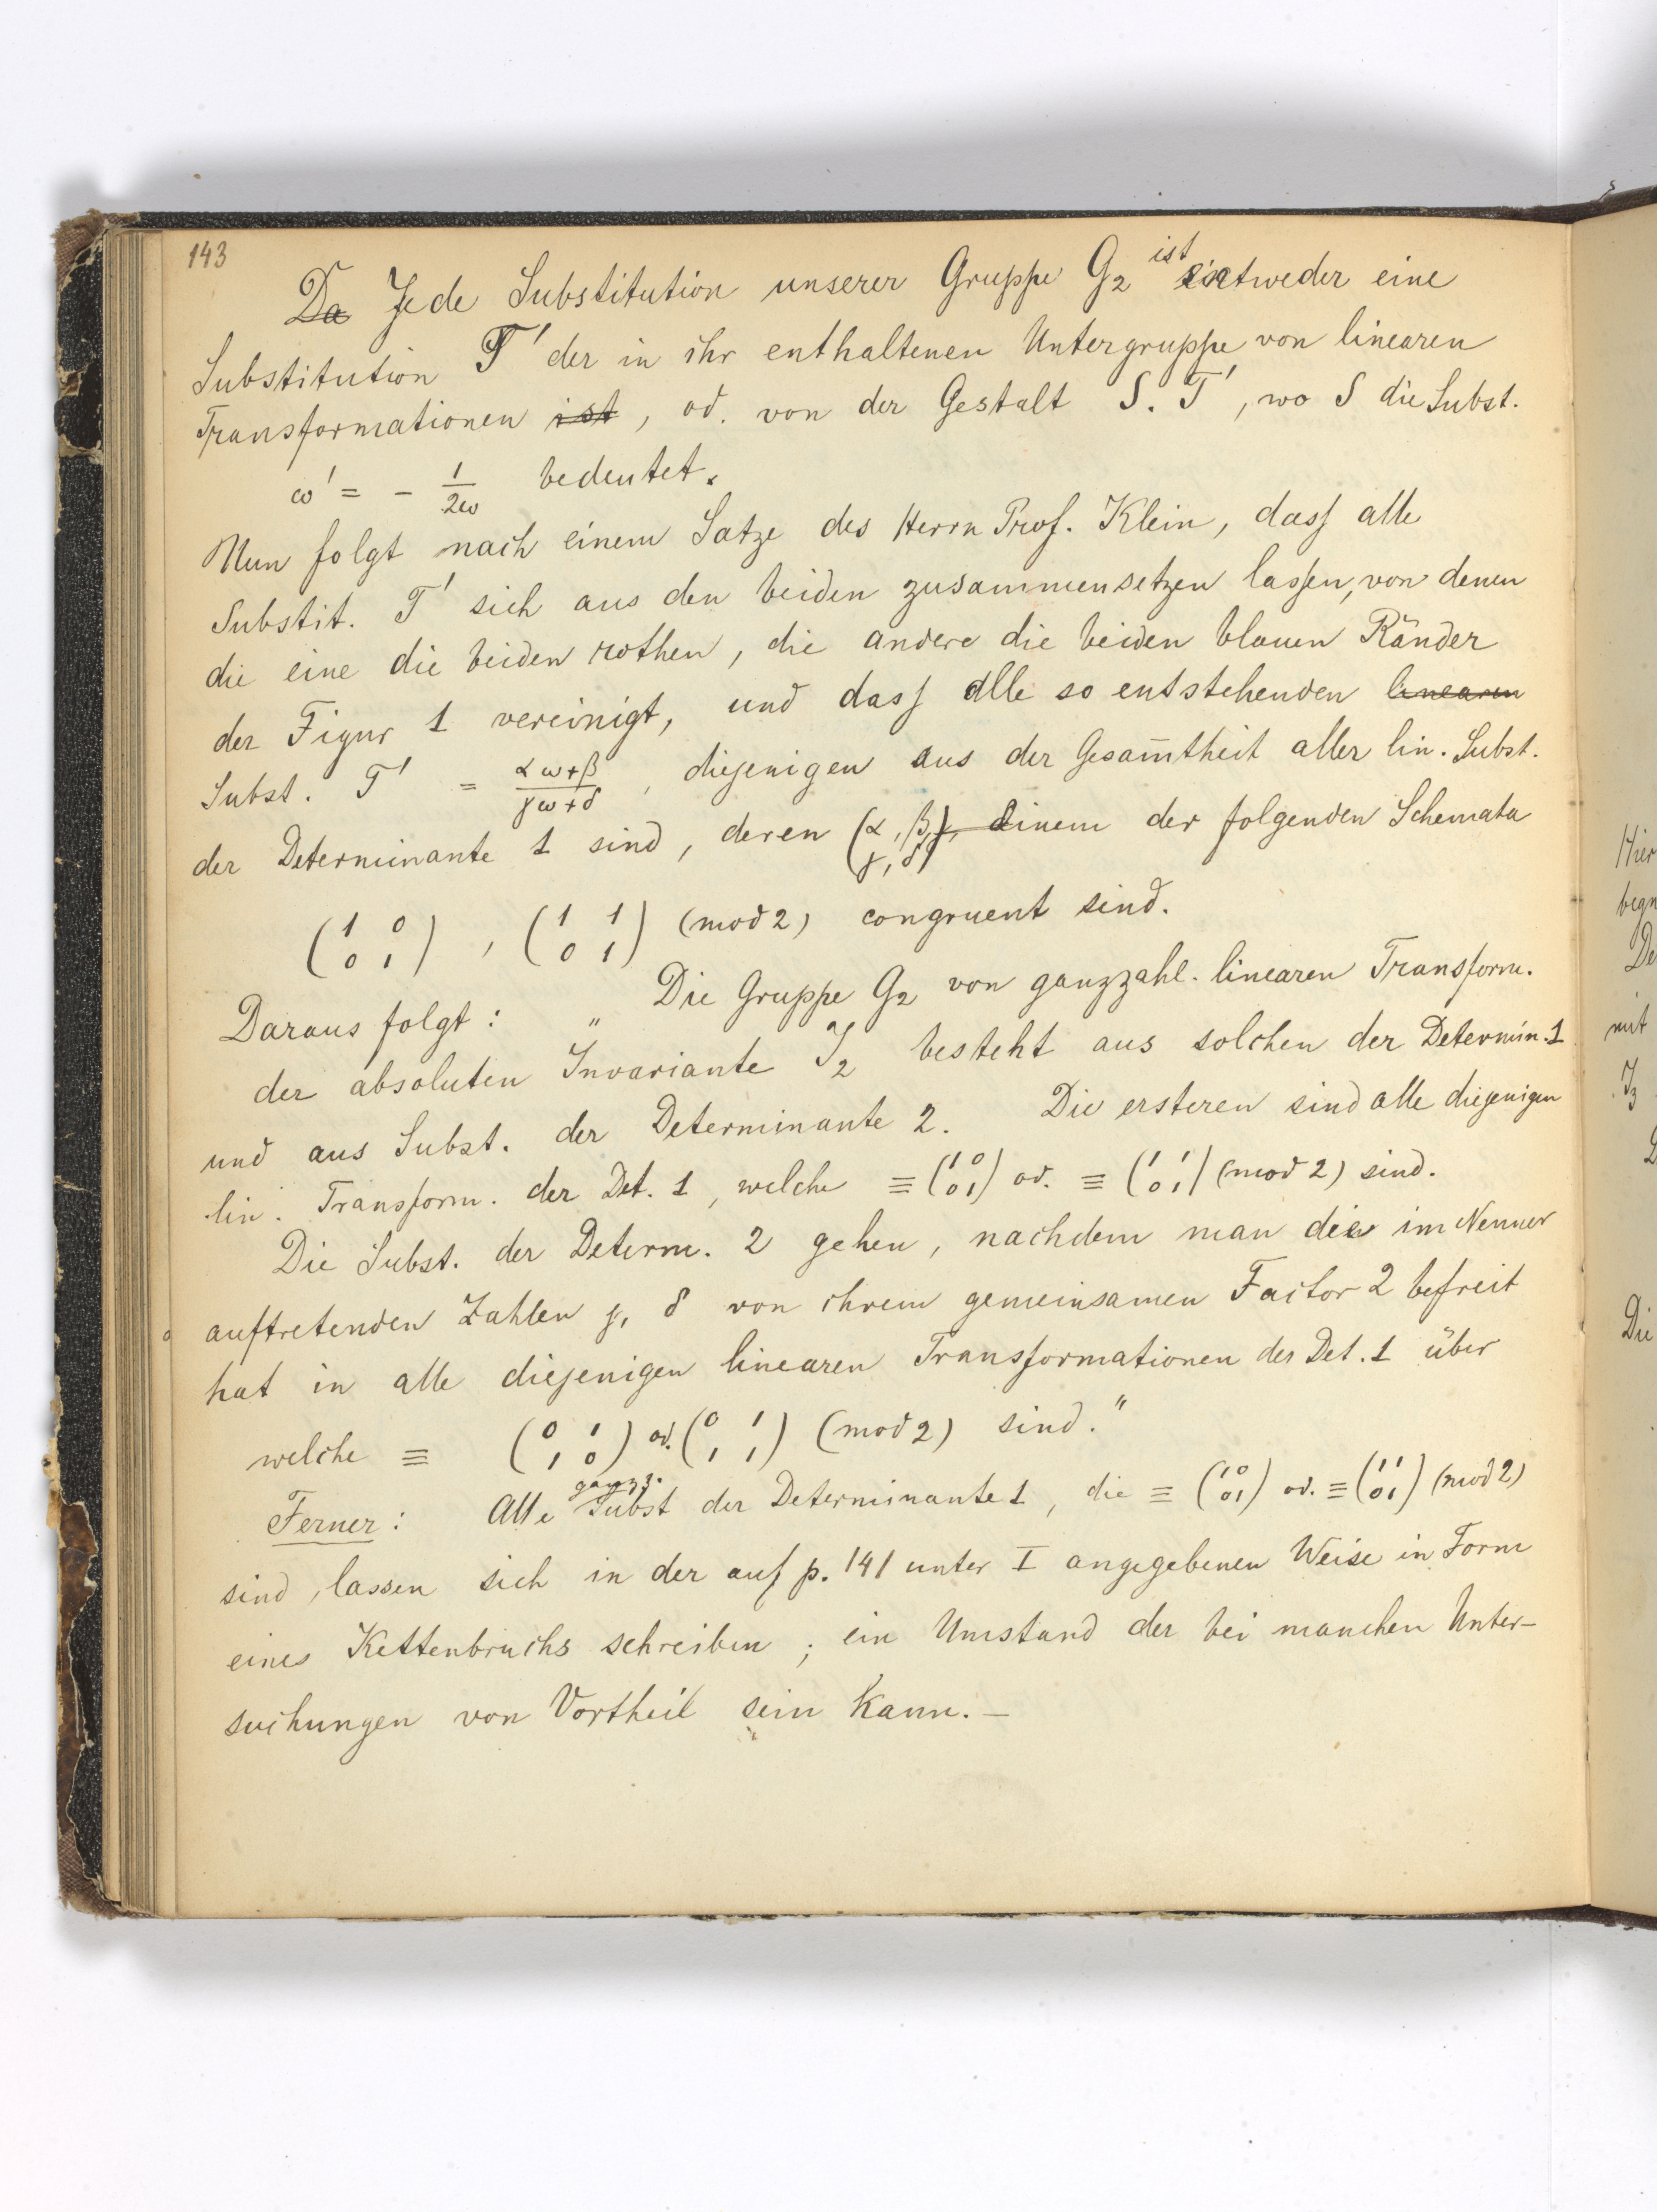 143
Da Jede Substitution unserer Gruppe G2 ist entweder eine
Substitution T' der in ihr enthaltenen Untergruppe von linearen
Transformationen ist, od. von der Gestalt S. T', wo S die Subst.
ω' = - 1/2ω bedeutet.
Nun folgt nach einem Satze des Herrn Prof. Klein, dass alle
Substit. T' sich aus den beiden zusammensetzen lassen, von denen
die eine die beiden rothen, die andere die beiden blauen Ränder
der Figur 1 vereinigt, und dass alle so entstehenden linearen
Subst. T' = αω+β/γω+δ, diejenigen aus der Gesam̄theit aller lin. Subst.
der Determinante 1 sind, deren (α, β, γ, δ) einem der folgenden Schemata
(1 0 0 1), (1 1 0 1) (mod 2) congruent sind.
Daraus folgt: „Die Gruppe G2 von ganzzahl. linearen Transform.
der absoluten Invariante J2 besteht aus solchen der Determin. 1
und aus Subst. der Determinante 2. Die ersteren sind alle diejenigen
lin. Transform. der Det. 1, welche ≡ (1 0 0 1) od. ≡ (1 1 0 1) (mod 2) sind.
Die Subst. der Determ. 2 gehen, nachdem man die im Nenner
auftretenden Zahlen γ, δ von ihrem gemeinsamen Factor 2 befreit
hat in alle diejenigen linearen Transformationen der Det. 1 über
welche ≡ (0 1 1 0) od. (0 1 1 1) (mod 2) sind."
Ferner: Alle ganzz. Subst der Determinante 1, die ≡ (1 0 0 1) od. ≡ (1 1 0 1) (mod 2)
sind, lassen sich in der auf p. 141 unter I angegebenen Weise in Form
eines Kettenbruchs schreiben; ein Umstand der bei manchen Unter-
suchungen von Vortheil sein kann. —
Hier
begn
De
mit
J3
Die